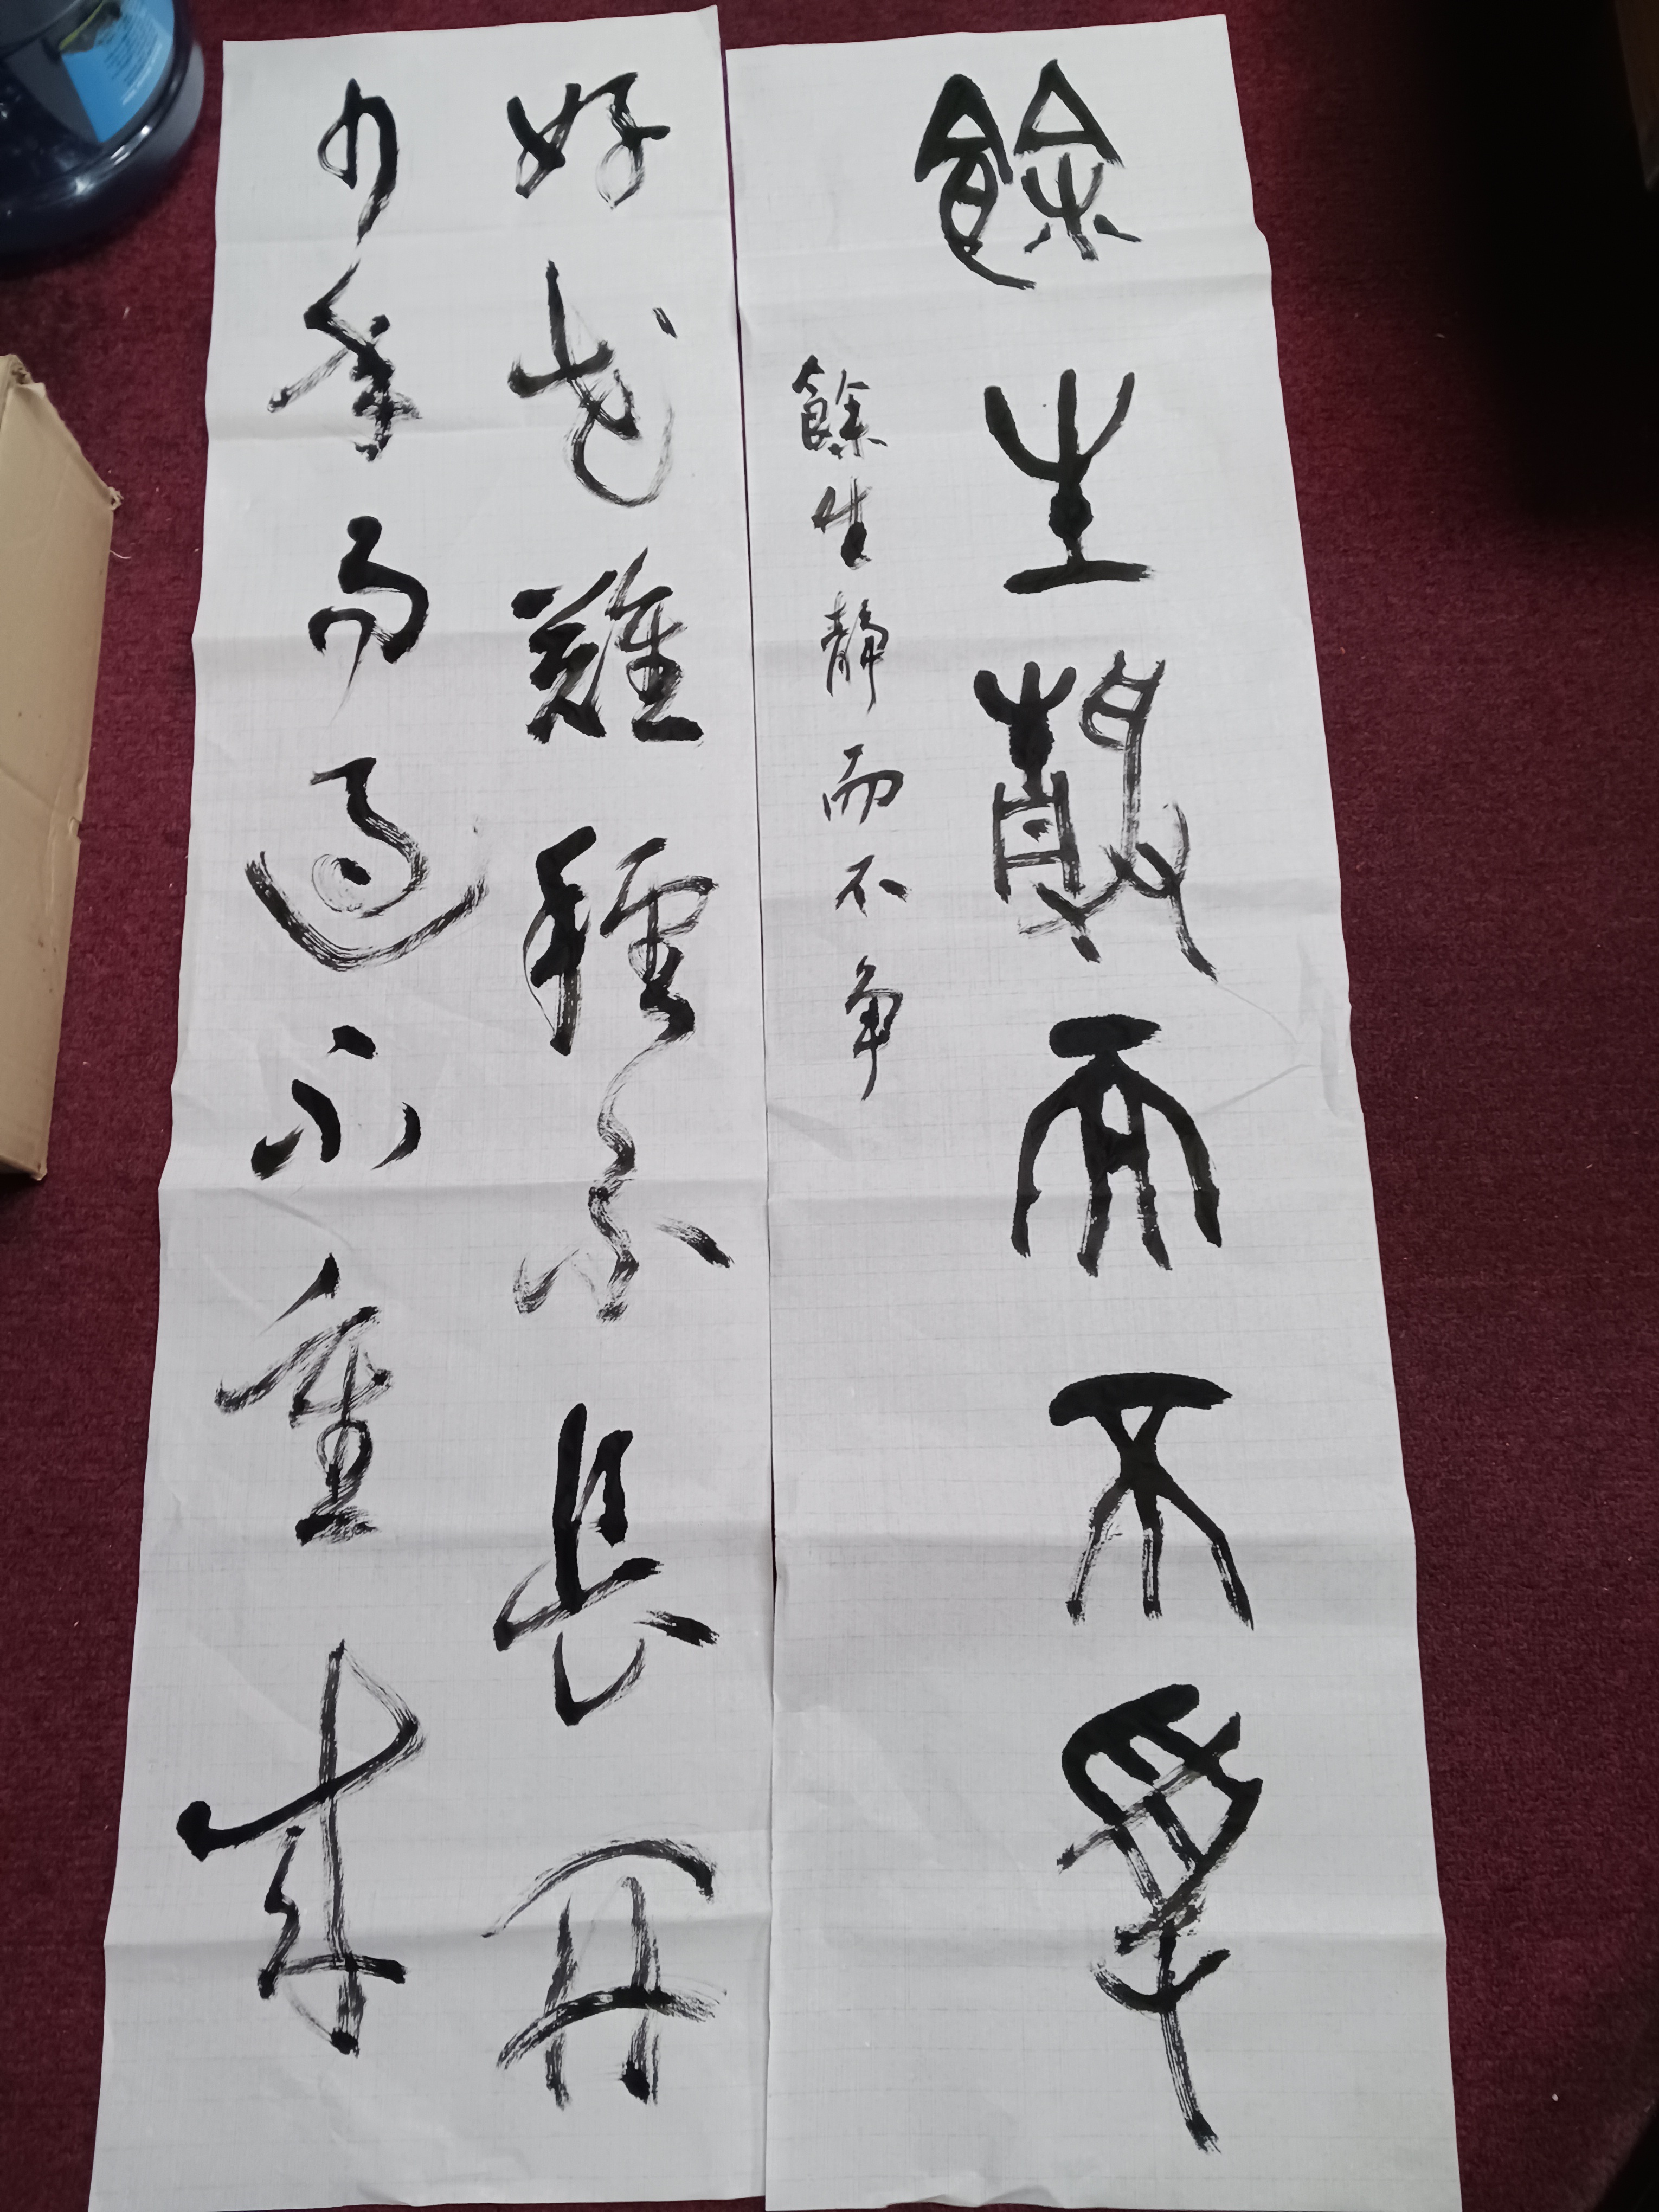 餘生靜而不爭
餘生静而不争
好花難種不長開
少年易過不重来